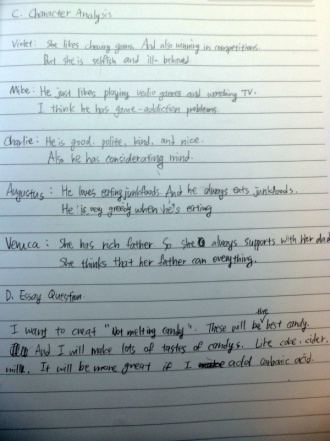 C. Character Analysis
Violet: She likes chewing gums. And also winning in competitions.
But she is selfish and ill-behaved.
Mike: He just likes playing vedio games and watching TV.
I think he has game-addiction problems.
Charlie: He is good, polite, kind, and nice.
Also he has considerating mind.
Augustus: He loves eating junkfoods. And he always eats junkfoods.
He is very greedy when he's eating
Veruca: She has rich father. So she always supports with Her dad
She thinks that her father can everything.
D. Essay Question
I want to creat "Not melting candy". These will be the best candy.
And I will make lots of tastes of candys. Like coke, cider,
milk. It will be more great if I add carbonic acid.